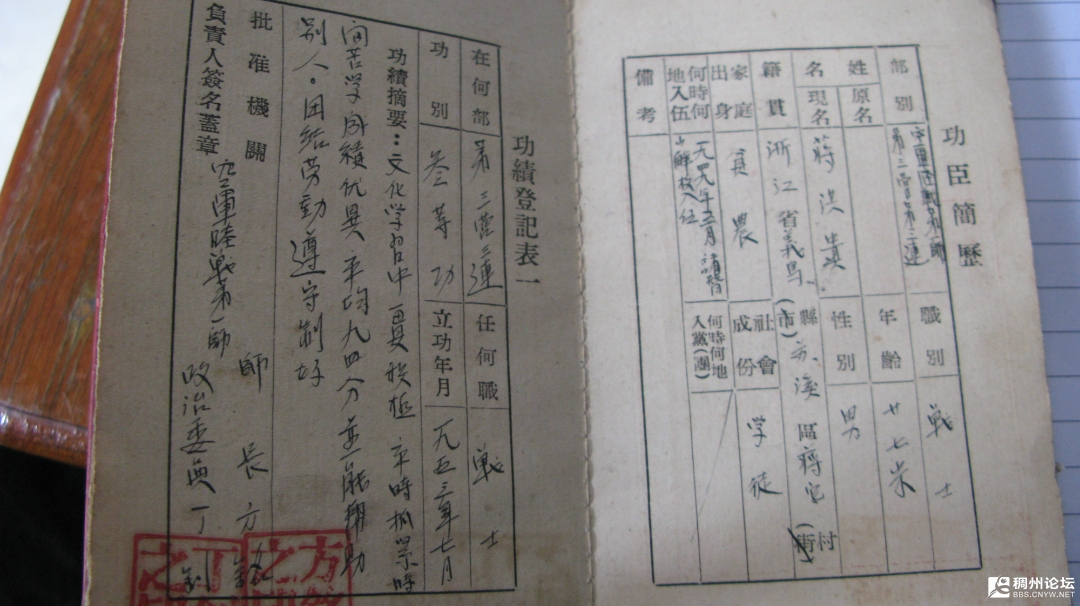 功臣簡歷
部別 空軍陸戰第一師第三營第三連 職別 戰士
姓名 原名 年齡 廿七岁
現名 蔣洪 性別 男
籍貫 浙江省義烏縣(市)苏溪區蔣宅村(街)
家庭出身 貧農 社會成份 学徒
何時何地入伍 一九四九年五月諸暨 解放入伍 何時何地入黨(團)
備考
功績登記表一
在何部 第三营三連 任何職 戰士
功別 叁等功 立功年月 一九五三年七月
功績摘要:文化学習中一貫积極 平時抓緊時
间苦学成績优異平均九四分並能帮助
別人。团結劳動遵守制好
批准機關 空軍陸戰第一師
負責人簽名蓋章 師長方 政治委員丁釗
稠州论坛
BBS.CNYW.NET